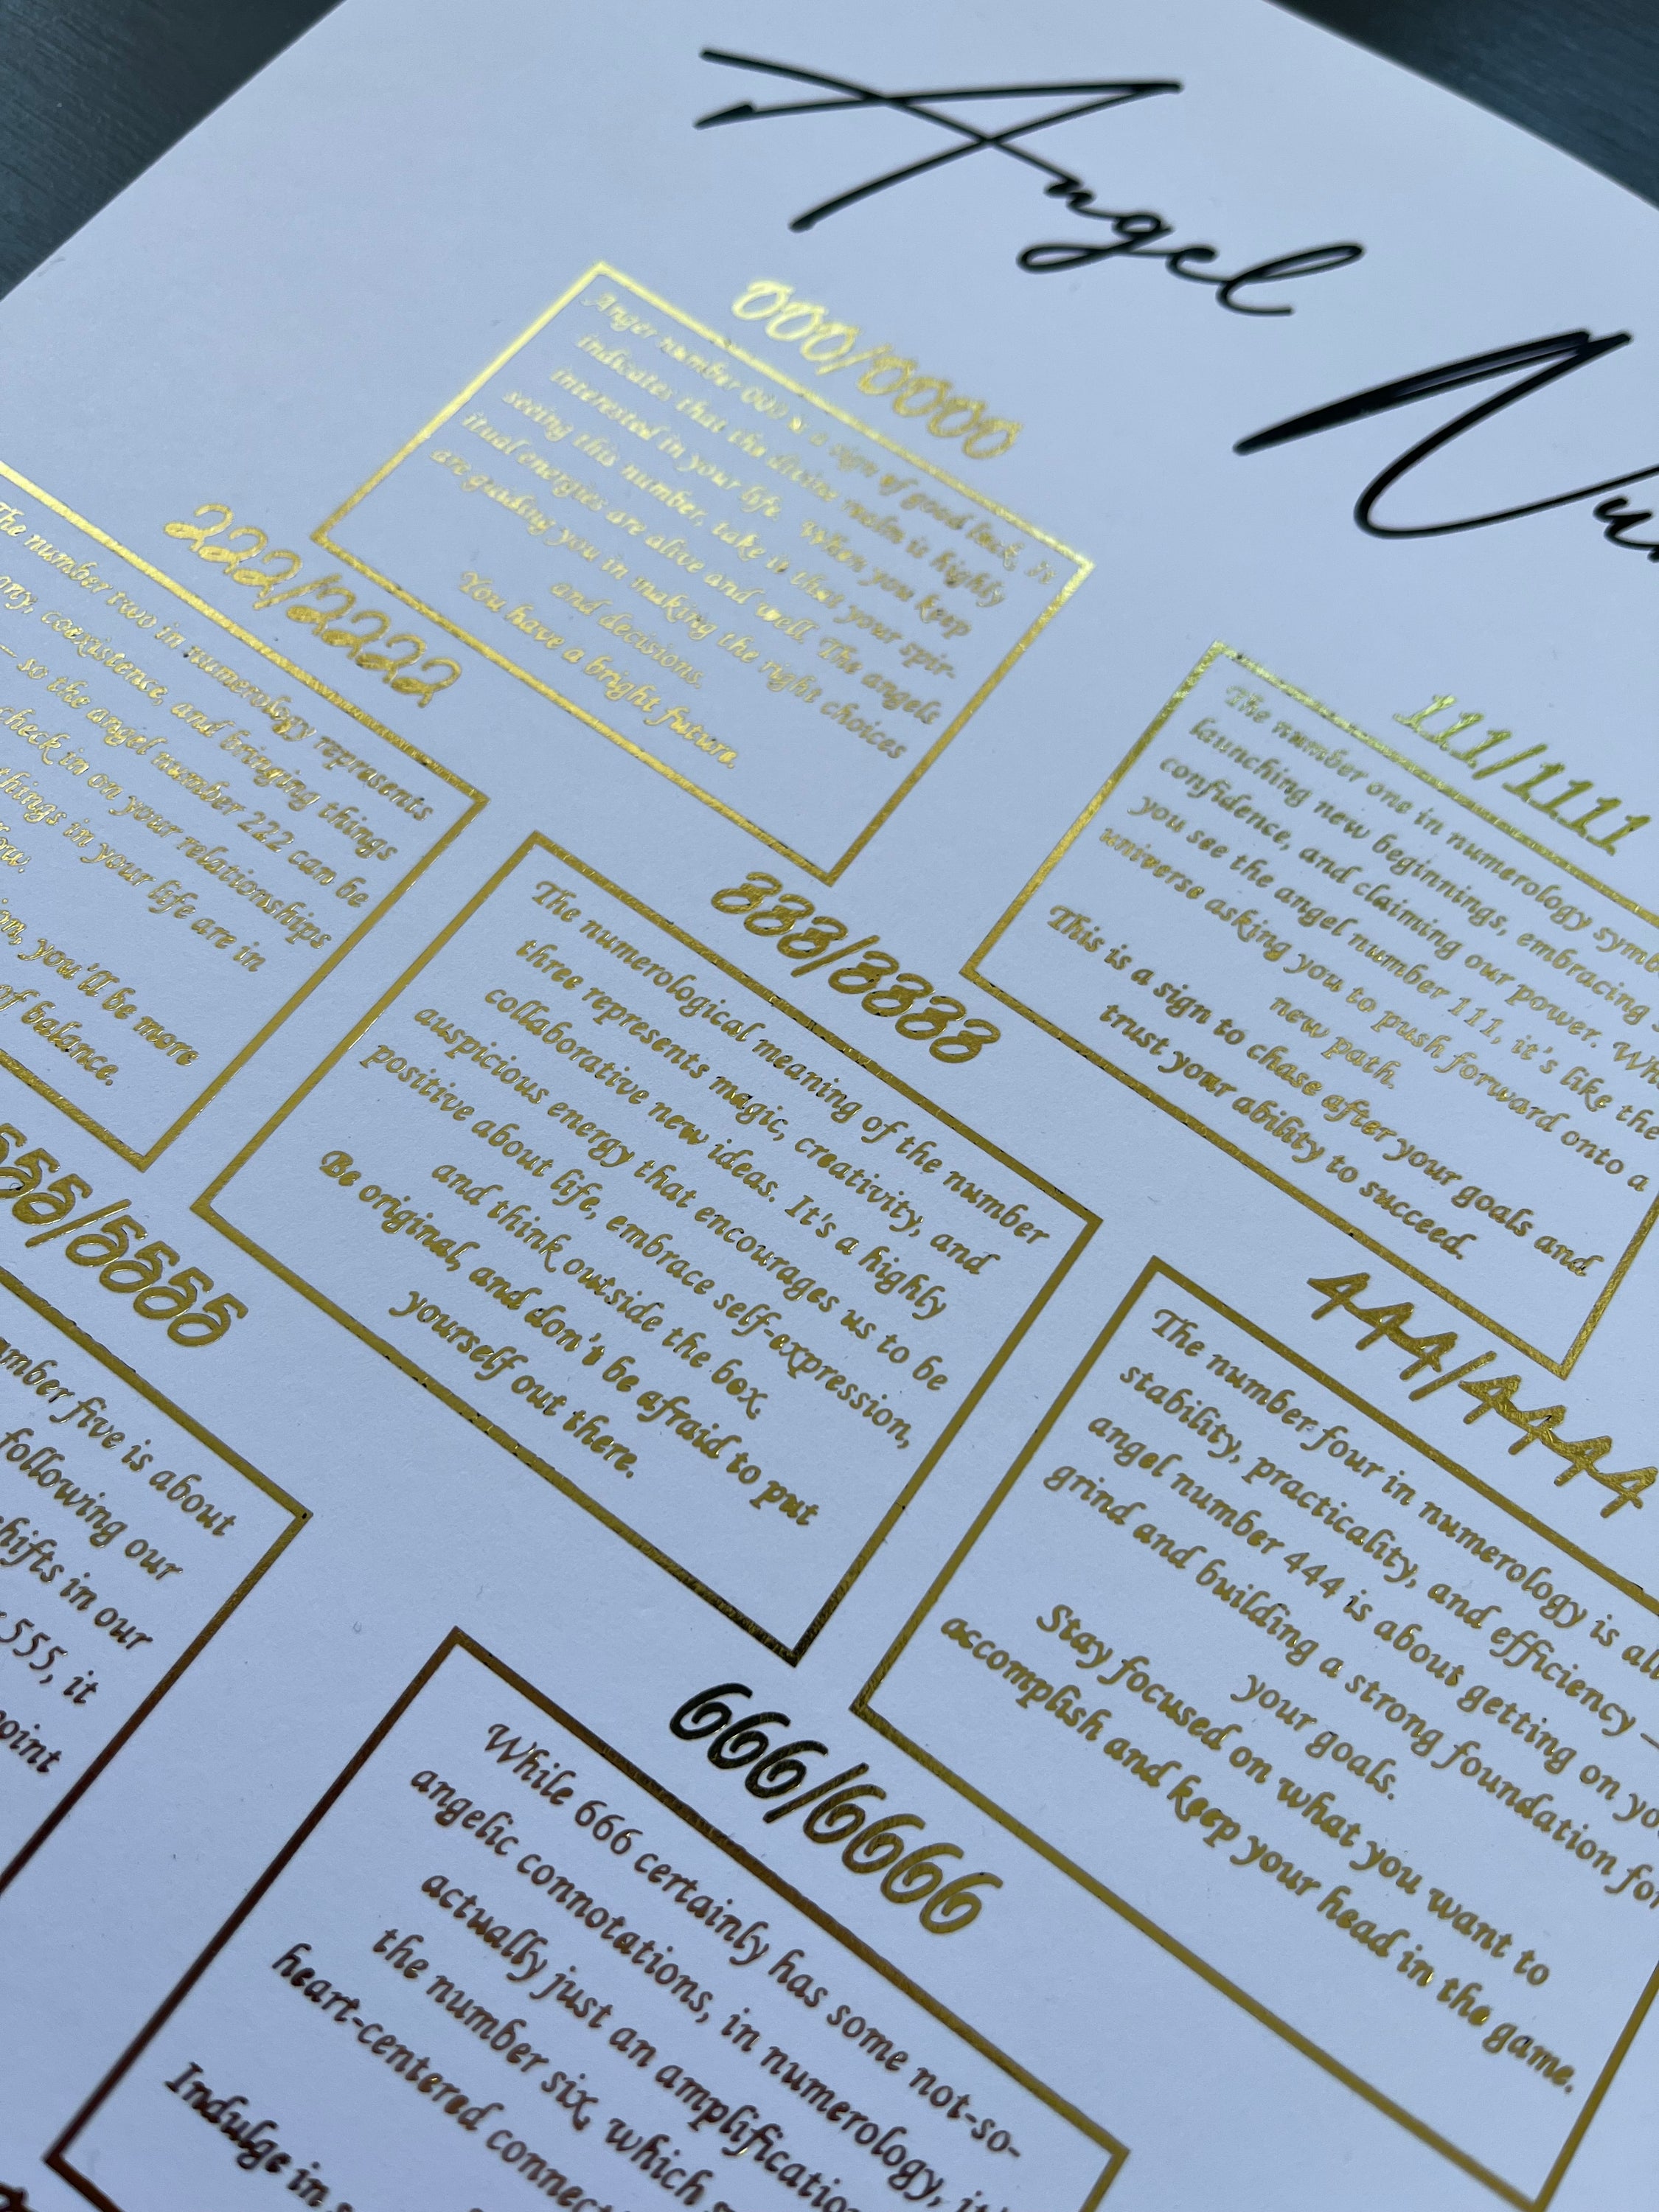 Angel Nu
000/0000
Anger number 000 is a sign of good luck, It
indicates that the divine realm is highly
interested in your life. When you keep
seeing this number, take it that your spir-
itual energies are alive and well. The angels
are guiding you in making the right choices
and decisions.
You have a bright future.
111/1111
The number one in numerology symb
launching new beginnings, embracing
confidence, and claiming our power. Wh
you see the angel number 111, it's like the
universe asking you to push forward onto a
new path.
This is a sign to chase after your goals and
trust your ability to succeed.
222/2222
The number two in numerology represents
any, coexistence, and bringing things
— so the angel number 222 can be
check in on your relationships
things in your life are in
ow.
ion, you'll be more
of balance.
333/3333
The numerological meaning of the number
three represents magic, creativity, and
collaborative new ideas. It's a highly
auspicious energy that encourages us to be
positive about life, embrace self-expression,
and think outside the box.
Be original, and don't be afraid to put
yourself out there.
444/4444
The number four in numerology is all
stability, practicality, and efficiency —
angel number 444 is about getting on yo
grind and building a strong foundation for
your goals.
Stay focused on what you want to
accomplish and keep your head in the game.
555/5555
mber five is about
following our
shifts in our
555, it
point
666/6666
While 666 certainly has some not-so-
angelic connotations, in numerology, it's
actually just an amplification
the number six, which
heart-centered connect
Indulge in s